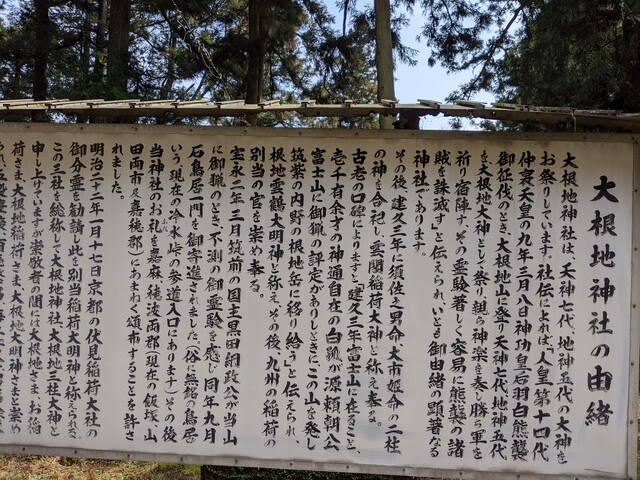 大根地神社の由緒
大根地神社は、天神七代、地神五代の大神を
お祭りしています。社伝によれば「人皇第十四代
仲哀天皇の九年三月八日神功皇后羽白熊襲
御征伐のとき、大根地山に登り天神七代地神五代
を大根地大神として祭り、親ら神楽を奏し勝ち軍を
祈り宿陣す、その霊験著しく容易に熊襲の諸
賊を誅滅す」と伝えられ、いとも御由緒の顕著なる
神社であります。
その後、建久三年に須佐之男命、大市姫命の二社
の神を合祀し、雲閣稲荷大神と称え奉る。
古老の口碑によりますと、「建久三年富士山に在ること、
壱千有余才の神通自在の白狐が源頼朝公
富士山に御猟の評定がありしときにこの山を発し
筑紫の内野の根地岳に移り給う」と伝えられ、
根地雲鶴大明神と称え、その後、九州の稲荷の
別当の官を崇め奉る。
宝永二年三月筑前の国主黒田綱政公が当山
に御猟のとき、不測の御霊験を感じ同年九月
石鳥居一門を御寄進されました。(俗に無銘の鳥居
いう 現在の冷水峠の参道入口にあります)その後
当神社のお札を嘉麻、穂波両郡(現在の飯塚、山
田両市及嘉穂郡)にあまねく頒布することを許さ
れました。
明治二十二年一月十七日京都の伏見稲荷大社の
御分霊を勧請し此を別当稲荷大明神と称えられ
この三社を総称して大根地神社、大根地三社大神と
申し上げていますが崇敬者の間には大根地さま、お稲
荷さま、大根地稲荷さま、大根地大明神さまと崇め